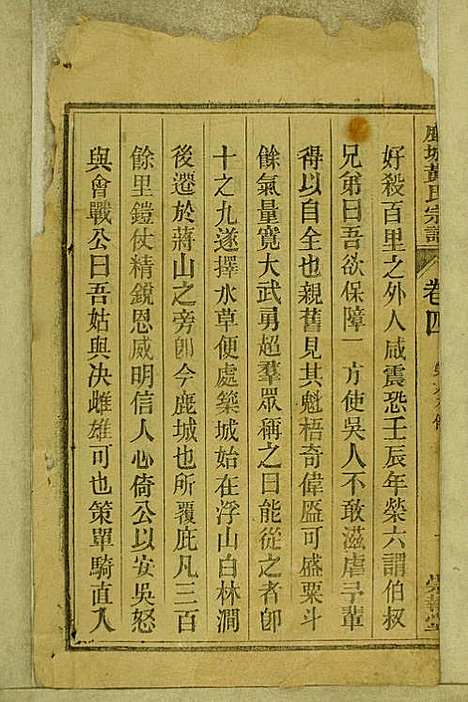 鹿城黃氏宗譜 卷四
好殺百里之外人咸震恐壬辰年榮六謂伯叔
兄弟曰吾欲保障一方使吳人不敢滋虐子輩
得以自全也親舊見其魁梧奇偉盔可盛粟斗
餘氣量寬大武勇超羣眾稱之曰能從之者卽
十之九遂擇水草便處築城始在浮山白林澗
後遷於蔣山之旁卽今鹿城也所覆庇凡三百
餘里鎧仗精銳恩威明信人心倚公以安吳怒
與會戰公曰吾姑與决雌雄可也策單騎直入